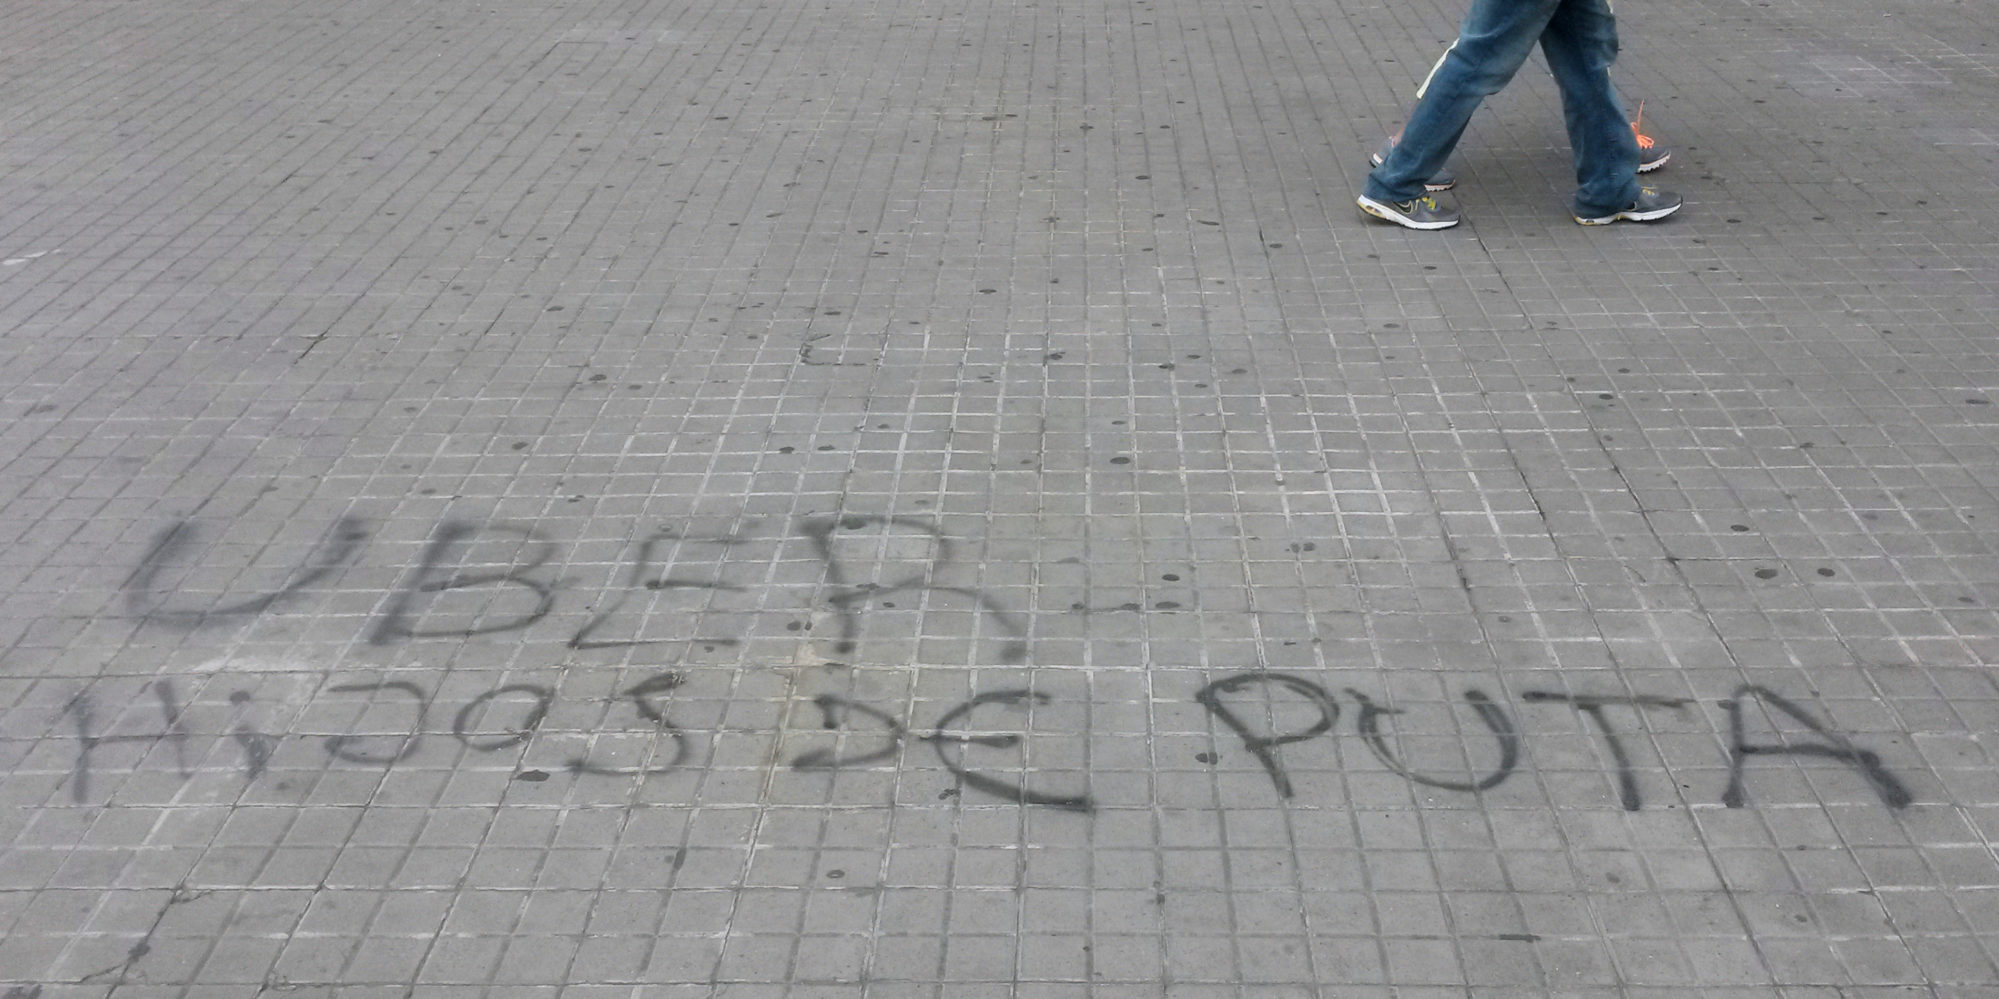 UBER
HiJOS DE PUTA